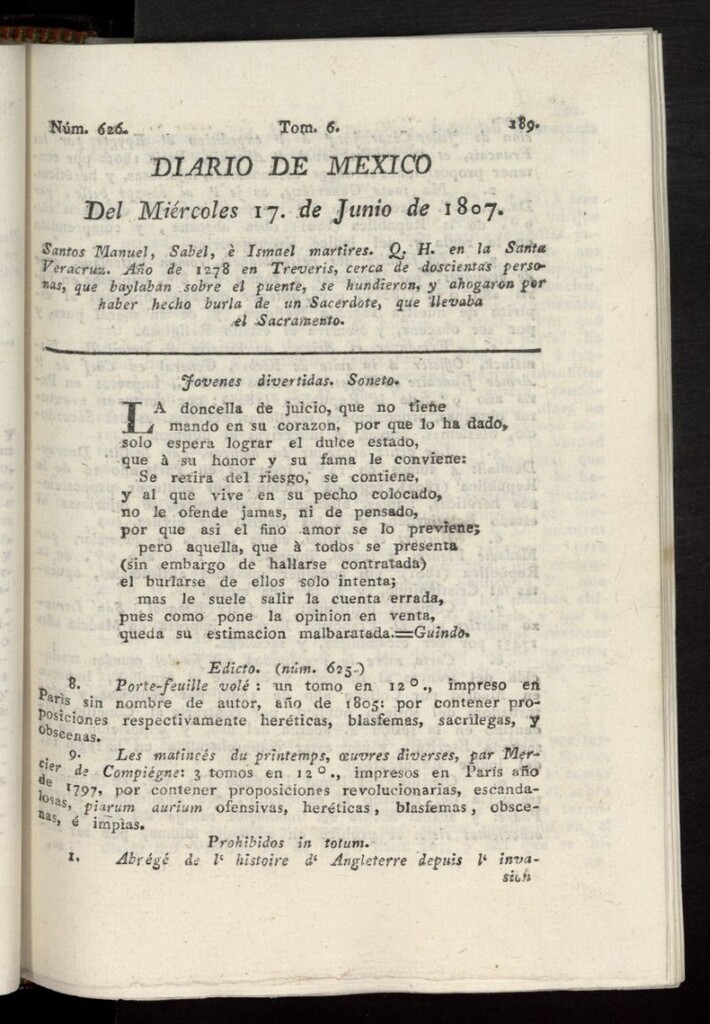 Núm. 626. Tom. 6. 189.
DIARIO DE MEXICO
Del Miércoles 17. de Junio de 1807.
Santos Manuel, Sabel, è Ismael martires. Q. H. en la Santa
Veracruz. Año de 1278 en Treveris, cerca de doscientas perso-
nas, que baylaban sobre el puente, se hundieron, y ahogaron por
haber hecho burla de un Sacerdote, que llevaba
el Sacramento.
Jovenes divertidas. Soneto.
LA doncella de juicio, que no tiene
mando en su corazon, por que lo ha dado,
solo espera lograr el dulce estado,
que à su honor y su fama le conviene:
Se retira del riesgo, se contiene,
y al que vive en su pecho colocado,
no le ofende jamas, ni de pensado,
por que asi el fino amor se lo previene;
pero aquella, que à todos se presenta
(sin embargo de hallarse contratada)
el burlarse de ellos solo intenta;
mas le suele salir la cuenta errada,
pues como pone la opinion en venta,
queda su estimacion malbaratada.=Guindo.
Edicto. (núm. 625.)
8. Porte-feuille volé: un tomo en 12°., impreso en
Paris sin nombre de autor, año de 1805: por contener pro-
posiciones respectivamente heréticas, blasfemas, sacrilegas, y
obscenas.
9. Les matincés du printemps, œuvres diverses, par Mer-
cier de Compiégne: 3 tomos en 12°., impresos en Paris año
de 1797, por contener proposiciones revolucionarias, escanda-
losas, piarum aurium ofensivas, heréticas, blasfemas, obsce-
nas, é impìas.
Prohibidos in totum.
1. Abrégé de l‘ histoire d‘ Angleterre depuis l‘ inva-
sion